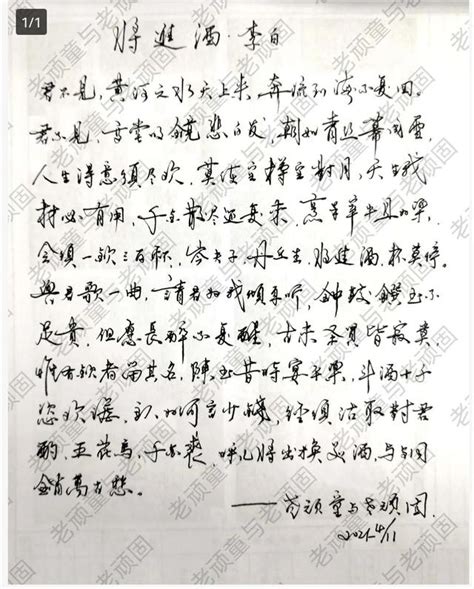 1/1
将進酒·李白
君不見,黄河之水天上来,奔流到海不复回。
君不見,高堂明镜悲白发,朝如青丝暮成雪,
人生得意須尽欢,莫使金樽空對月,天生我
材必有用,千金散尽还复来,烹羊宰牛且为樂,
会須一飲三百杯,岑夫子,丹丘生,将進酒,杯莫停。
與君歌一曲,請君为我傾耳听,钟鼓饌玉不
足貴,但愿長醉不复醒,古来圣贤皆寂寞,
惟有飲者留其名,陳王昔時宴平樂,斗酒十千
恣欢谑,主人何言少钱,經須沽取對君
酌,五花馬,千金裘,呼儿将出换美酒,与尔同
銷萬古愁。
——老顽童与老顽固
2021.4/11
老顽童与老顽固